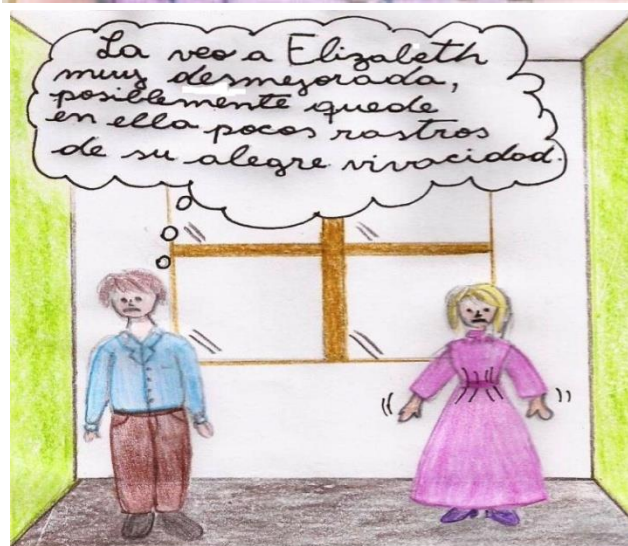 La veo a Elizabeth
muy desmejorada,
posiblemente quede
en ella pocos rastros
de su alegre vivacidad.